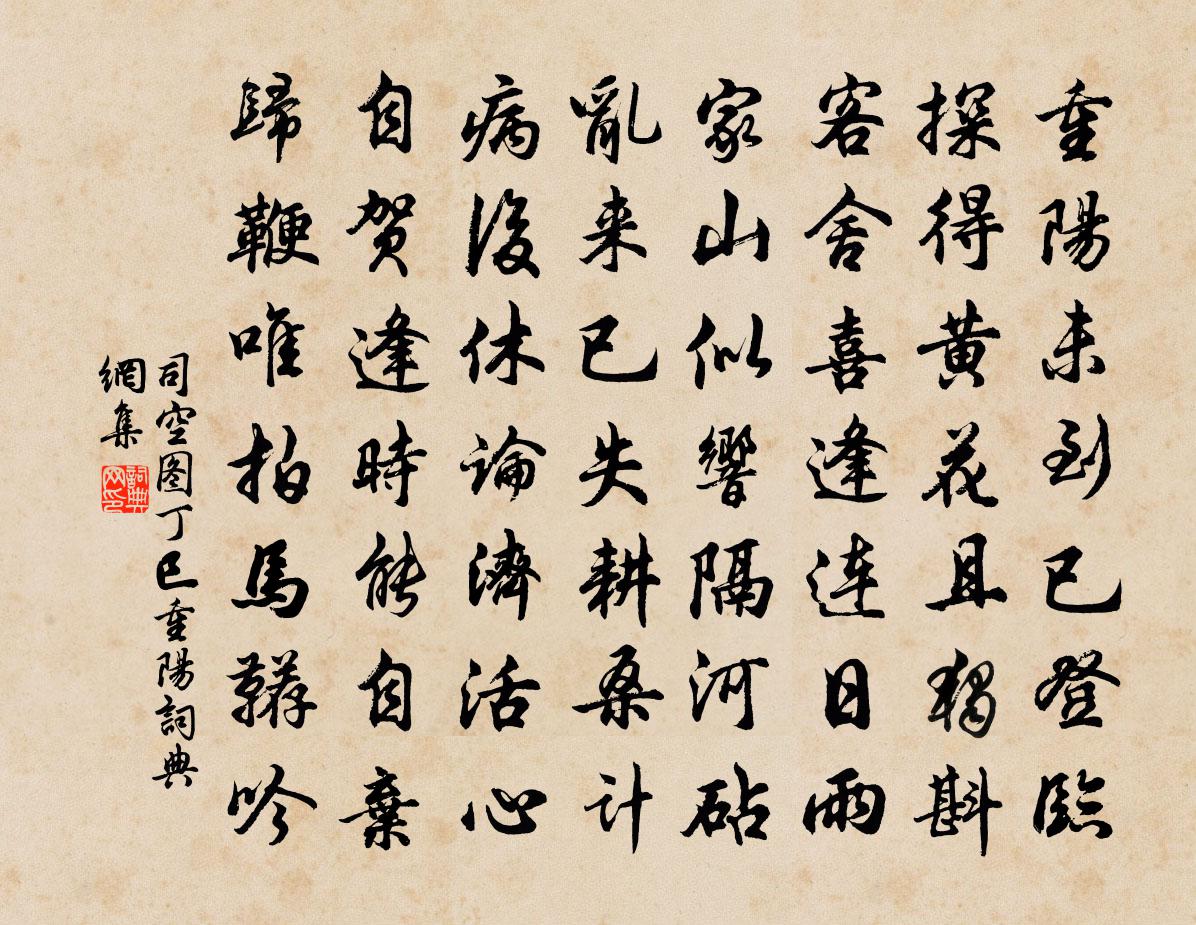 重陽未到已登臨
探得黄花且獨斟
客舍喜逢連日雨
家山似響隔河砧
亂来已失耕桑計
病後休論濟活心
自賀逢時能自棄
歸鞭唯拍馬韉吟
司空图丁巳重陽詞典
網集
詞典
网印